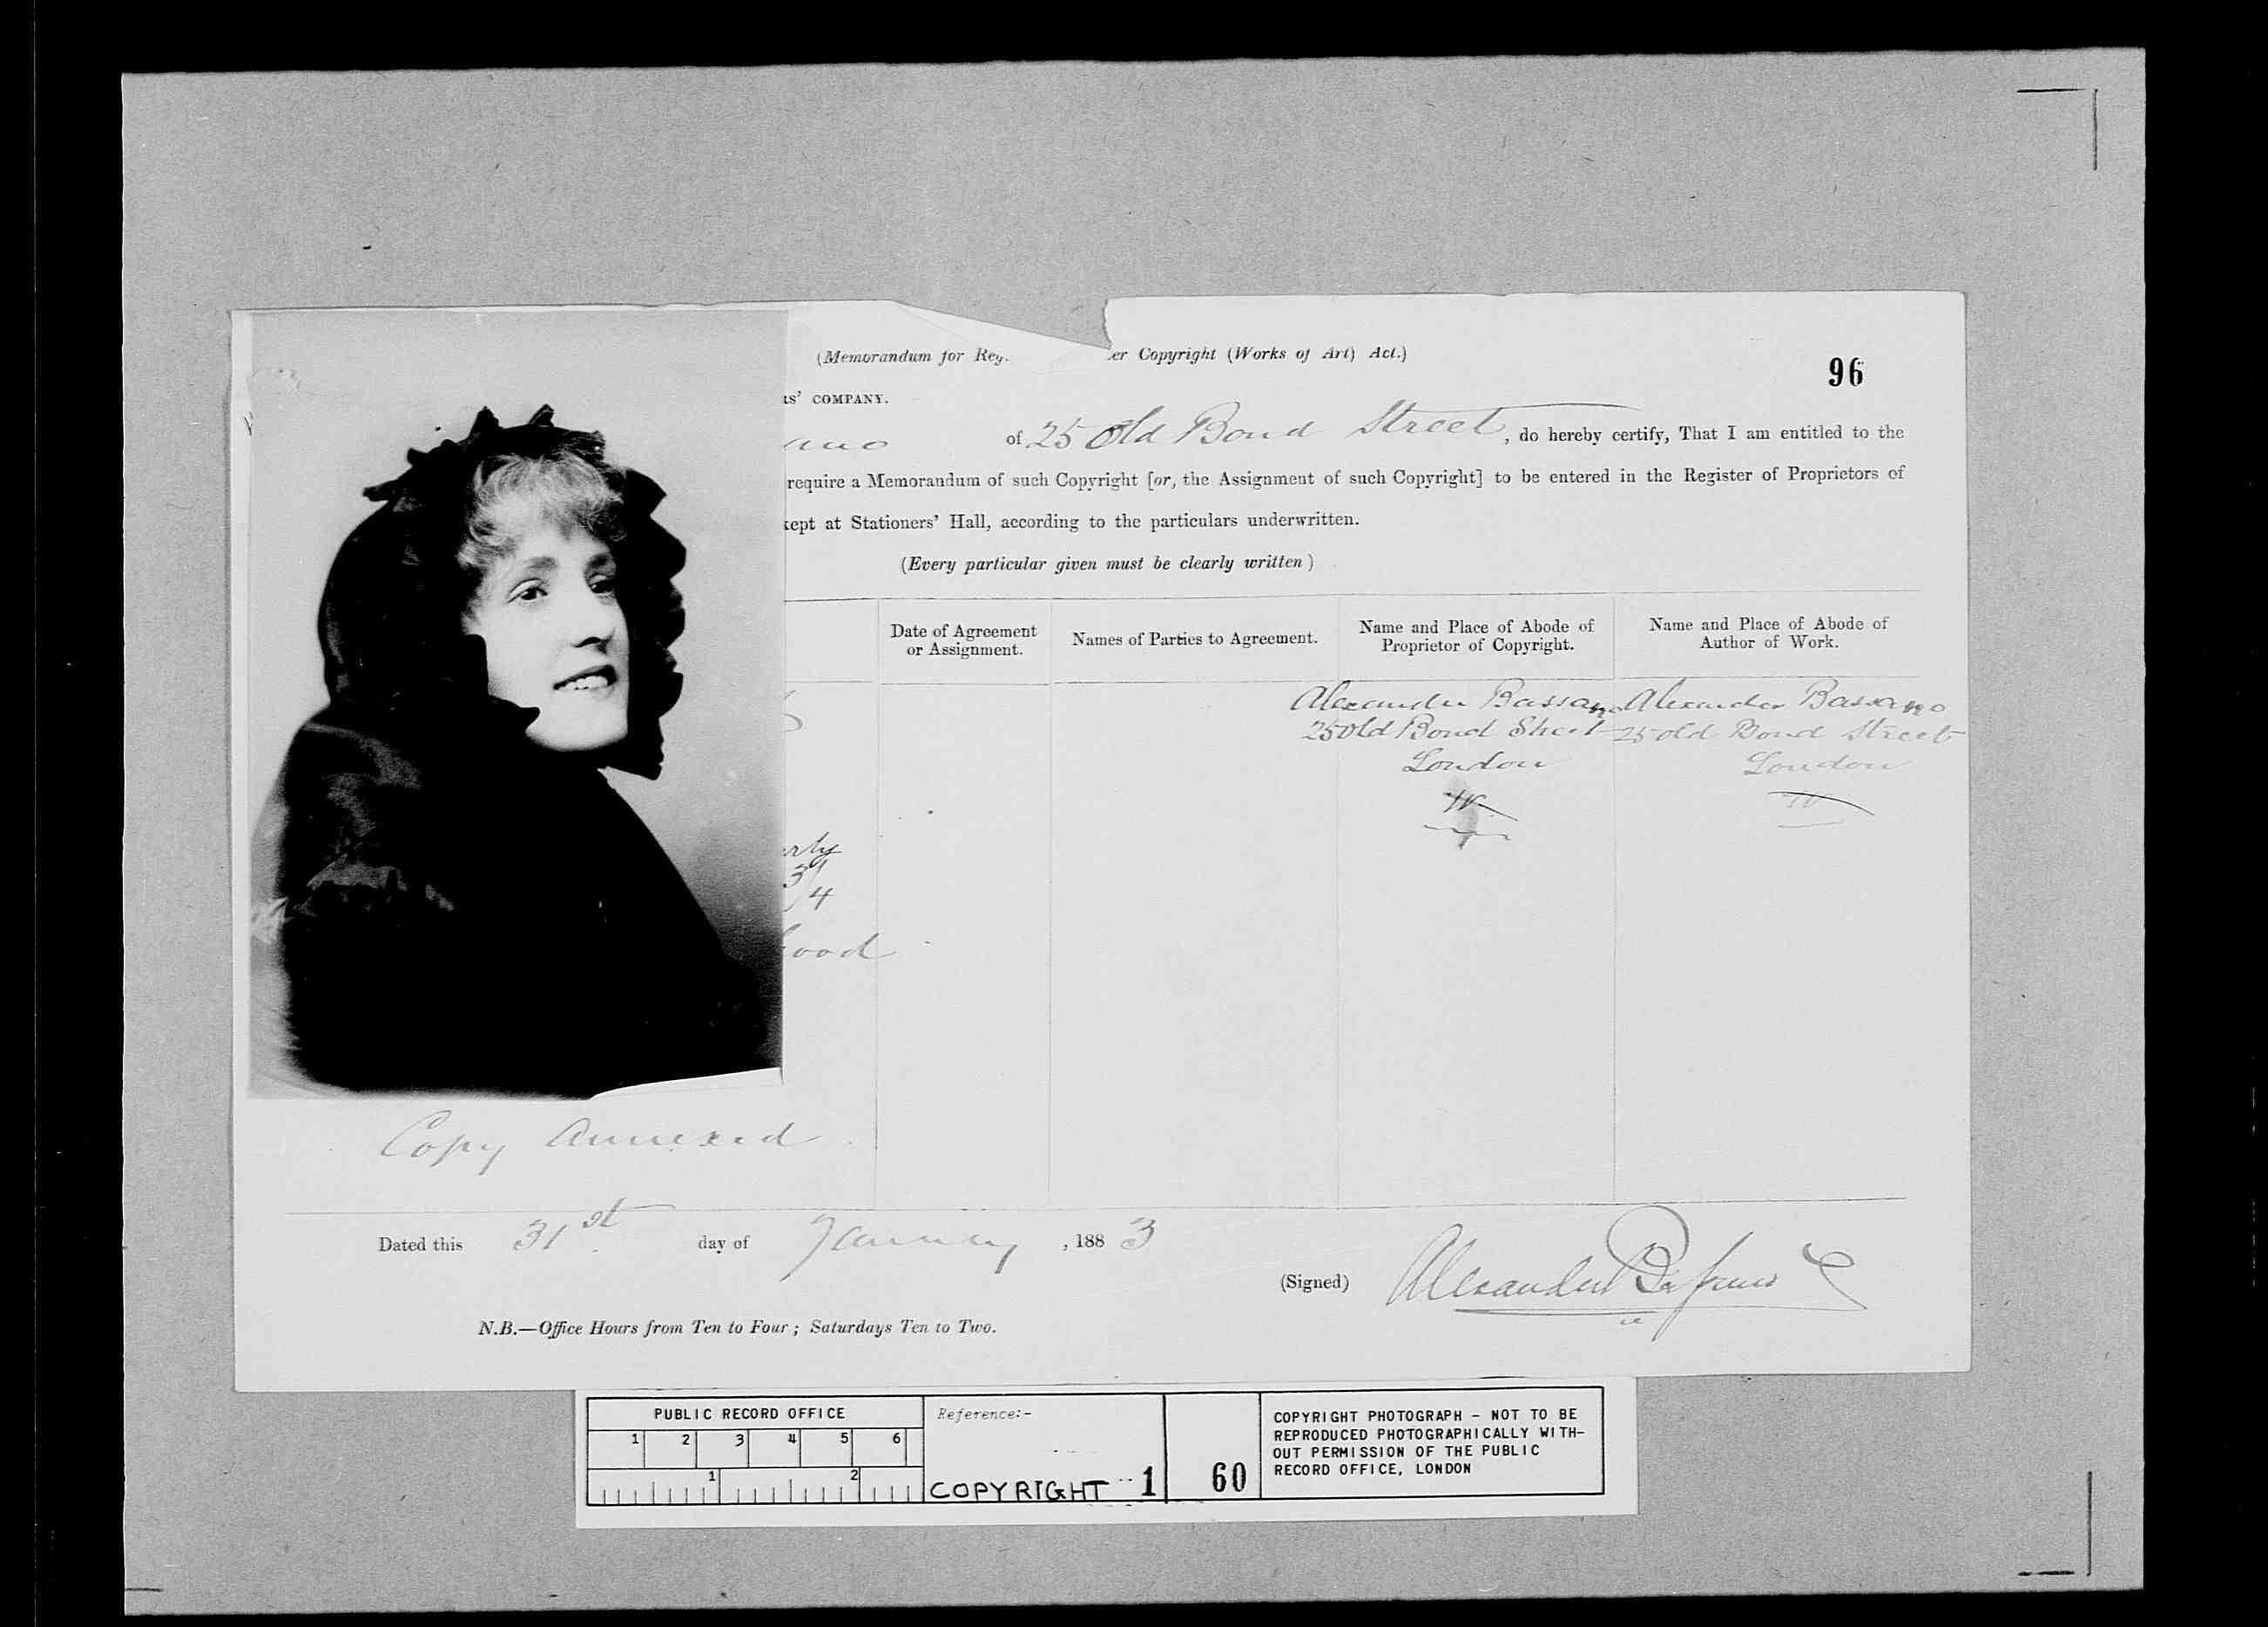 (Memorandum for Reg. er Copyright (Works of Art) Act.)
96
RS' COMPANY.
ano of 25 Old Bond Street, do hereby certify, That I am entitled to the
require a Memorandum of such Copyright [or, the Assignment of such Copyright] to be entered in the Register of Proprietors of
kept at Stationers' Hall, according to the particulars underwritten.
(Every particular given must be clearly written)
Date of Agreement or Assignment.
Names of Parties to Agreement.
Name and Place of Abode of Proprietor of Copyright.
Name and Place of Abode of Author of Work.
Alexander Bassano
25 Old Bond Street
London
W
Alexander Bassano
25 Old Bond Street
London
W
rty
3/
4
ood
Copy Annexed
Dated this 31st day of January, 1883
(Signed) Alexander Bassano
N.B.—Office Hours from Ten to Four; Saturdays Ten to Two.
PUBLIC RECORD OFFICE
1 2 3 4 5 6
1 2
Reference:-
COPYRIGHT 1
60
COPYRIGHT PHOTOGRAPH - NOT TO BE
REPRODUCED PHOTOGRAPHICALLY WITH-
OUT PERMISSION OF THE PUBLIC
RECORD OFFICE, LONDON